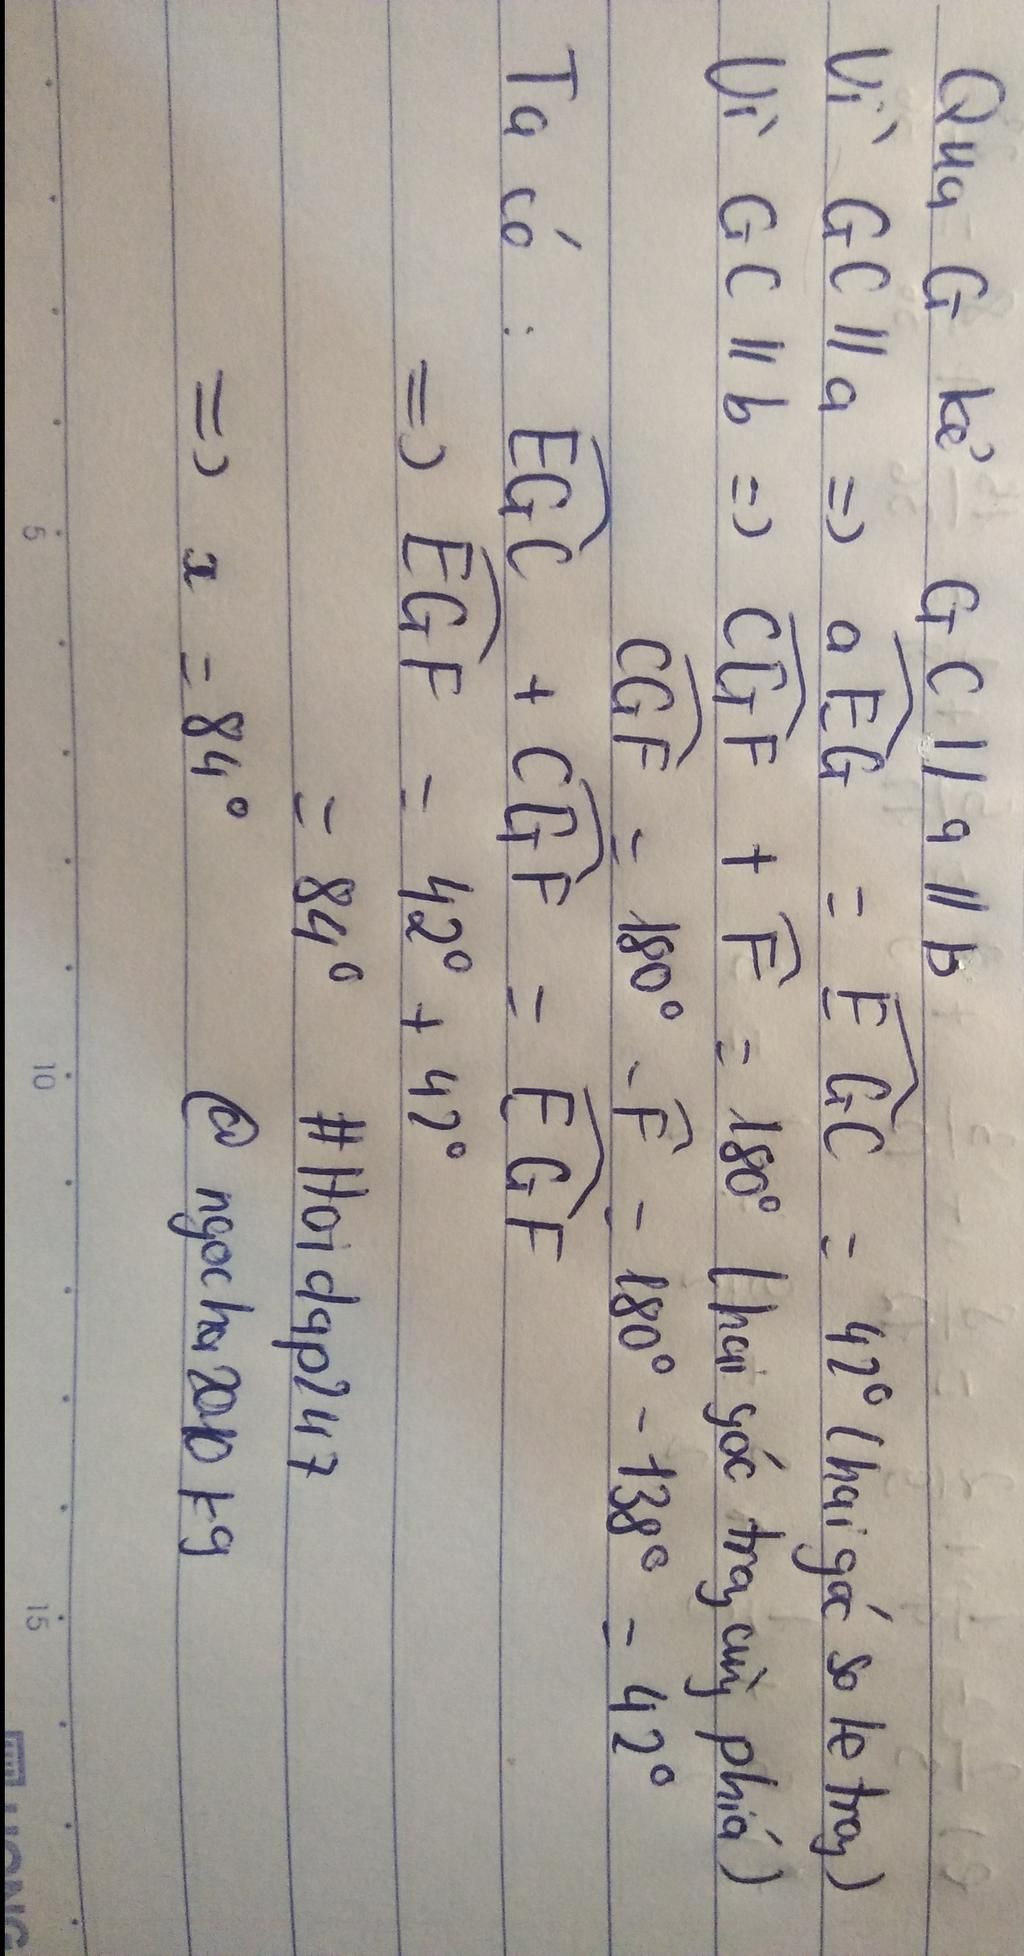 Qua G kẻ GC // a // b
Vì GC // a => aEG = EGC = 42° (hai góc so le trong)
Vì GC // b => CGF + F = 180° (hai góc trong cùng phía)
CGF = 180° - F = 180° - 138° = 42°
Ta có : EGC + CGF = EGF
=> EGF = 42° + 42°
= 84° #Hoidap247
=> x = 84°
5 10 15